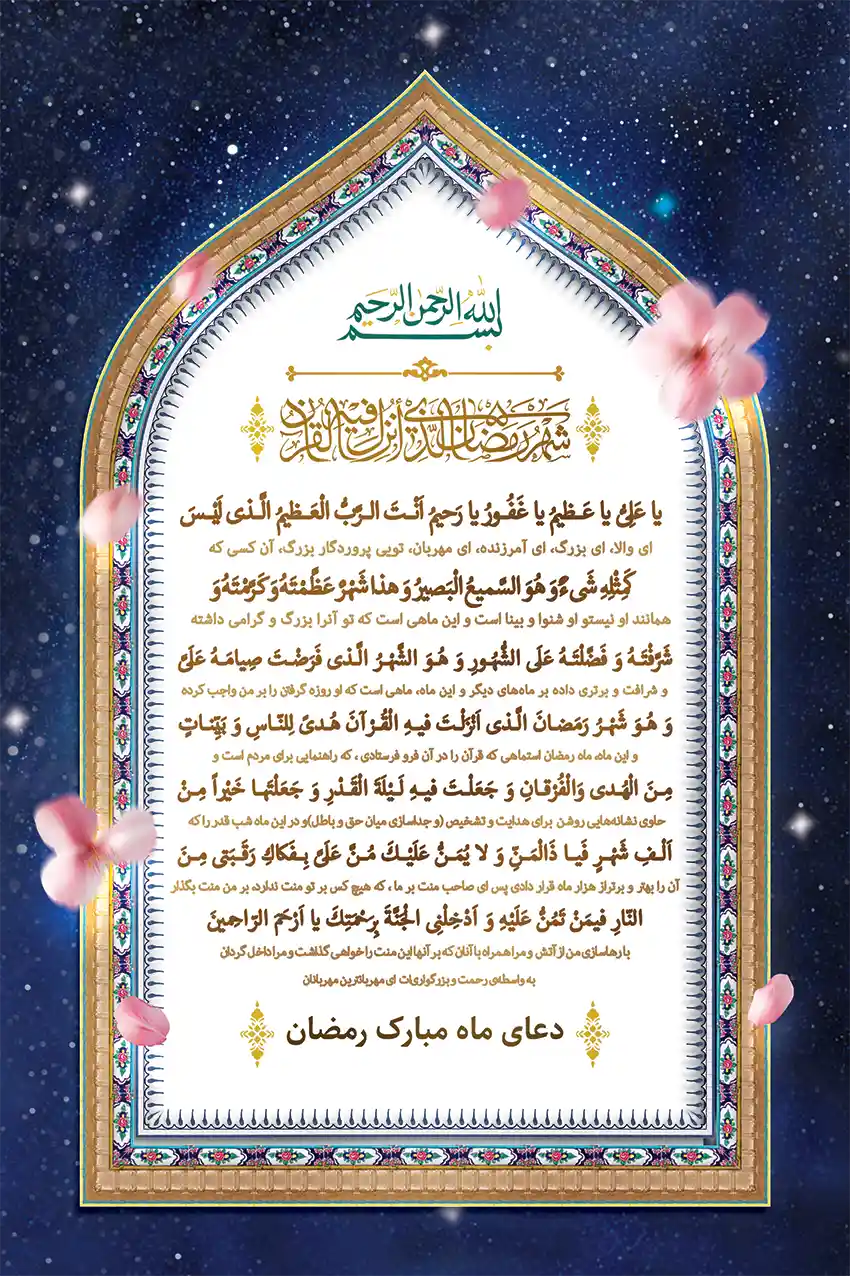 بسم الله الرحمن الرحیم
شهر رمضان الذی أنزل فیه القرآن
یا عَلِیُّ یا عَظیمُ یا غَفُورُ یا رَحیمُ اَنْتَ الرَّبُّ الْعَظیمُ الَّذی لَیْسَ
ای والا، ای بزرگ، ای آمرزنده، ای مهربان، تویی پروردگار بزرگ، آن کسی که
کَمِثْلِهِ شَیءٌ وَ هُوَ السَّمیعُ الْبَصیرُ وَ هذا شَهْرٌ عَظَّمْتَهُ وَ کَرَّمْتَهُ وَ
همانند او نیستو او شنوا و بینا است و این ماهی است که تو آنرا بزرگ و گرامی داشته
شَرَّفْتَهُ وَ فَضَّلْتَهُ عَلَی الشُّهُورِ وَ هُوَ الشَّهْرُ الَّذی فَرَضْتَ صِیامَهُ عَلَیَّ
و شرافت و برتری داده بر ماه‌های دیگر و این ماه، ماهی است که او روزه گرفتن را بر من واجب کرده
وَ هُوَ شَهْرُ رَمَضانَ الَّذی اَنْزَلْتَ فیهِ الْقُرْآنَ هُدیً لِلنّاسِ وَ بَیِّناتٍ
و این ماه، ماه رمضان استماهی که قرآن را در آن فرو فرستادی ، که راهنمایی برای مردم است و
مِنَ الْهُدی وَالْفُرْقانِ وَ جَعَلْتَ فیهِ لَیْلَةَ الْقَدْرِ وَ جَعَلْتَها خَیْراً مِنْ
حاوی نشانه‌هایی روشن برای هدایت و تشخیص (و جداسازی میان حق و باطل)و در این ماه شب قدر را که
اَلْفِ شَهْرٍ فَیا ذَالْمَنِّ وَ لا یُمَنُّ عَلَیْكَ مُنَّ عَلَیَّ بِفَكاكِ رَقَبَتی مِنَ
آن را بهتر و برتراز هزار ماه قرار دادی پس ای صاحب منت بر ما ، که هیچ کس بر تو منت ندارد، بر من منت بگذار
النّارِ فیمَنْ تَمُنُّ عَلَیْهِ وَ اَدْخِلْنِی الْجَنَّةَ بِرَحْمَتِكَ یا اَرْحَمَ الرّاحِمینَ
با رهاسازی من از آتش و مرا همراه با آنان که بر آنها این منت را خواهی گذاشت و مرا داخل گردان
به واسطه‌ی رحمت و بزرگواری‌ات ای مهربانترین مهربانان
دعای ماه مبارک رمضان